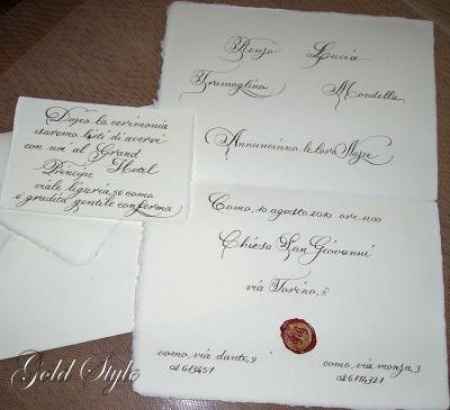 Renzo Lucia
Tramaglino Mondella
Annunciano le loro Nozze
Como, 10 agosto 2010 ore 11.00
Chiesa San Giovanni
via Torino,
como, via dante, 9
como, via monza, 3
Dopo la cerimonia
saremo lieti di avervi
con noi al Grand
Principe Hotel
viale liguria, 50 como
è gradita gentile conferma
Gold Style